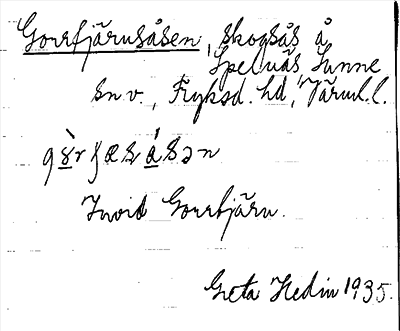 Gorrfjärusåsen, skogsås å
Spelnäs, Sunne
sn v., Fryksd. hd, Värml. l.
Invid Gorrfjärn.
Greta Hedin 1935.